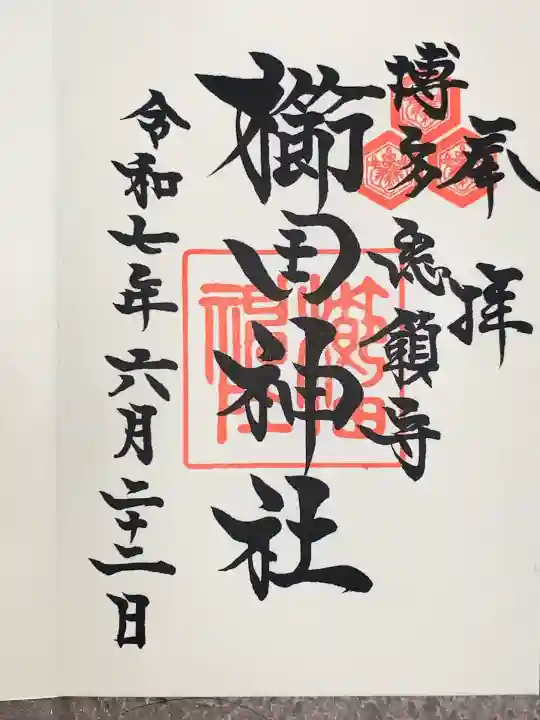 奉拝
博多総鎮守
櫛田神社
櫛田神社
令和七年六月二十二日